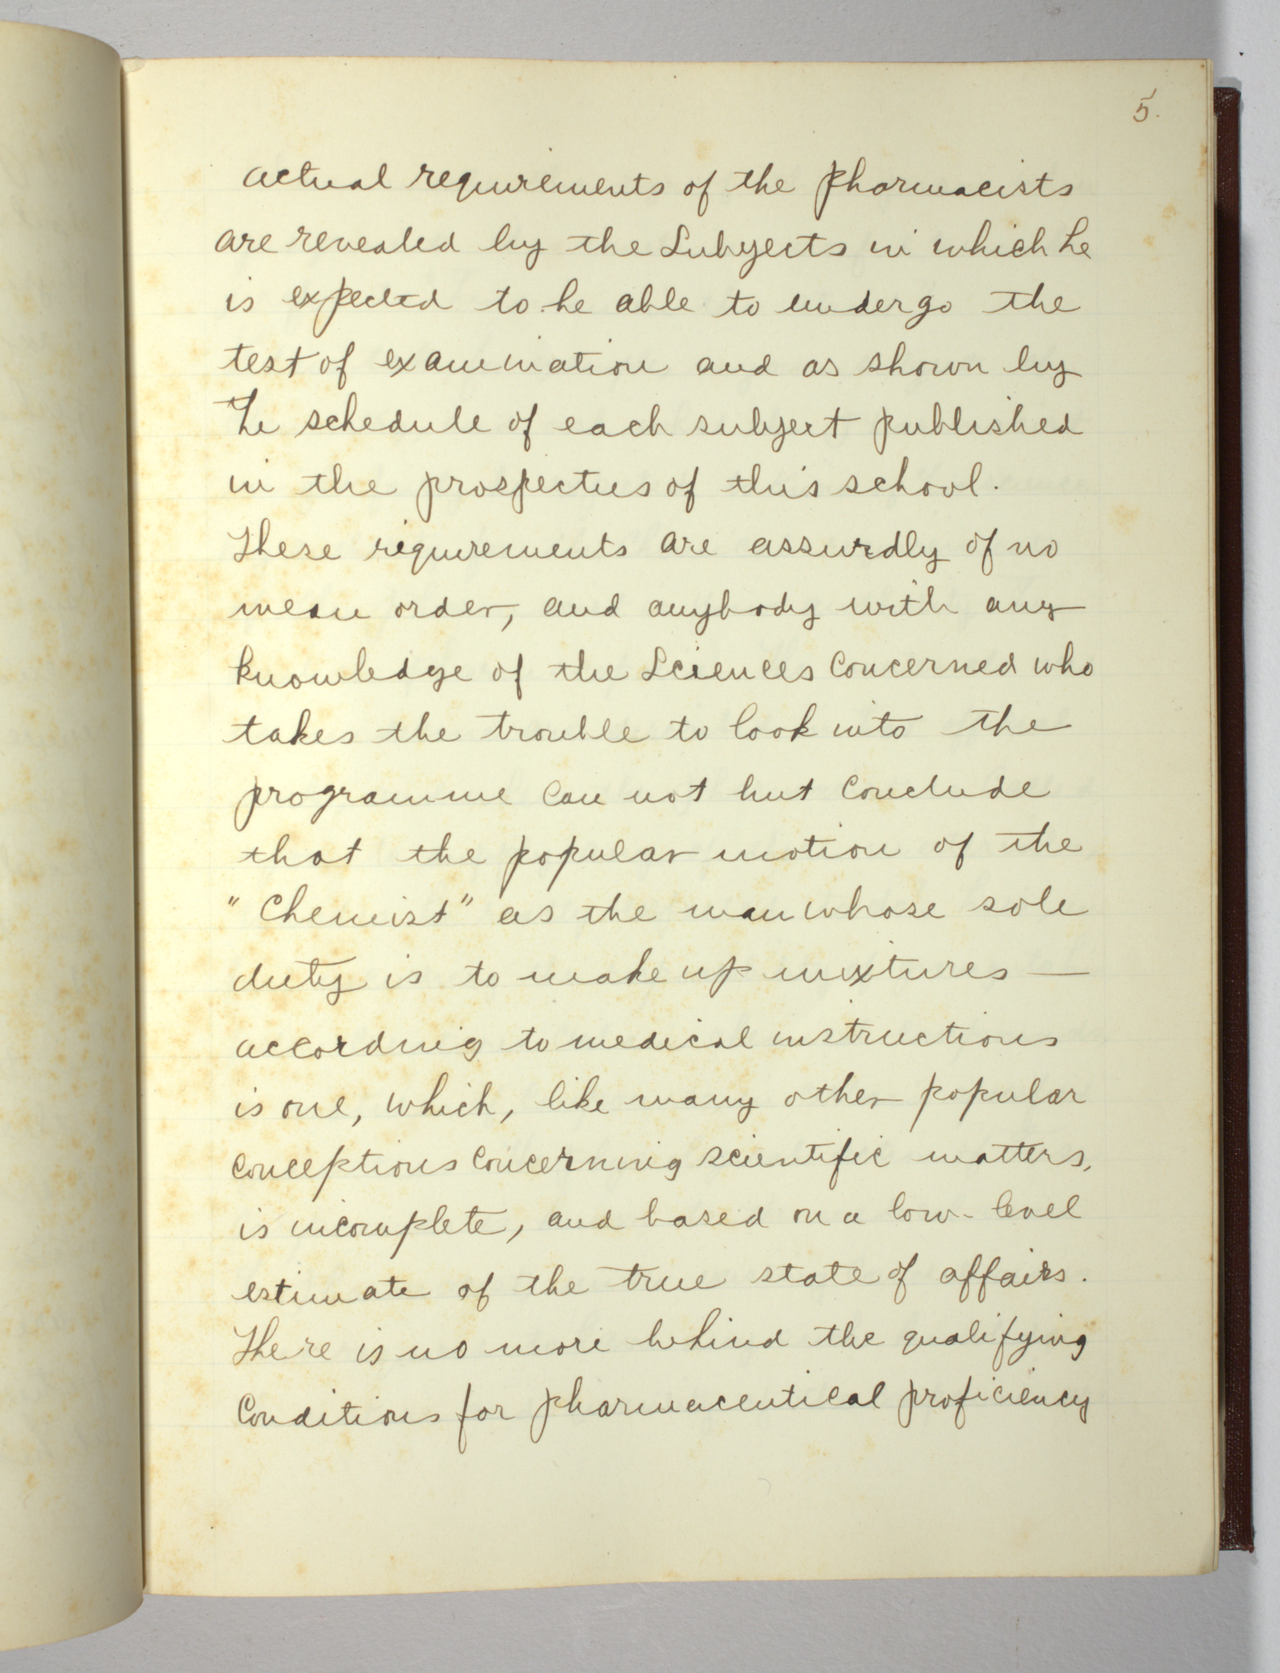 5.
actual requirements of the pharmacists
are revealed by the Subjects in which he
is expected to be able to undergo the
test of examination and as shown by
the schedule of each subject published
in the prospectus of this school.
These requirements are assurdly of no
mean order, and anybody with any
knowledge of the Sciences concerned who
takes the trouble to look into the
programme can not but conclude
that the popular notion of the
"Chemist" as the man whose sole
duty is to make up mixtures —
according to medical instructions
is one, which, like many other popular
conceptions concerning scientific matters,
is incomplete, and based on a low-level
estimate of the true state of affairs.
There is no more behind the qualifying
Conditions for pharmaceutical proficiency